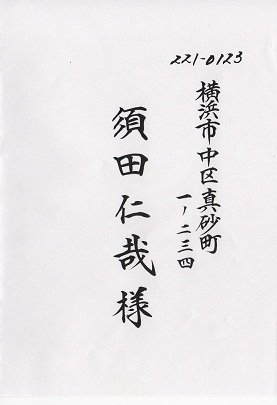 221-0123
横浜市中区真砂町
一ノ二三四
須田仁哉様